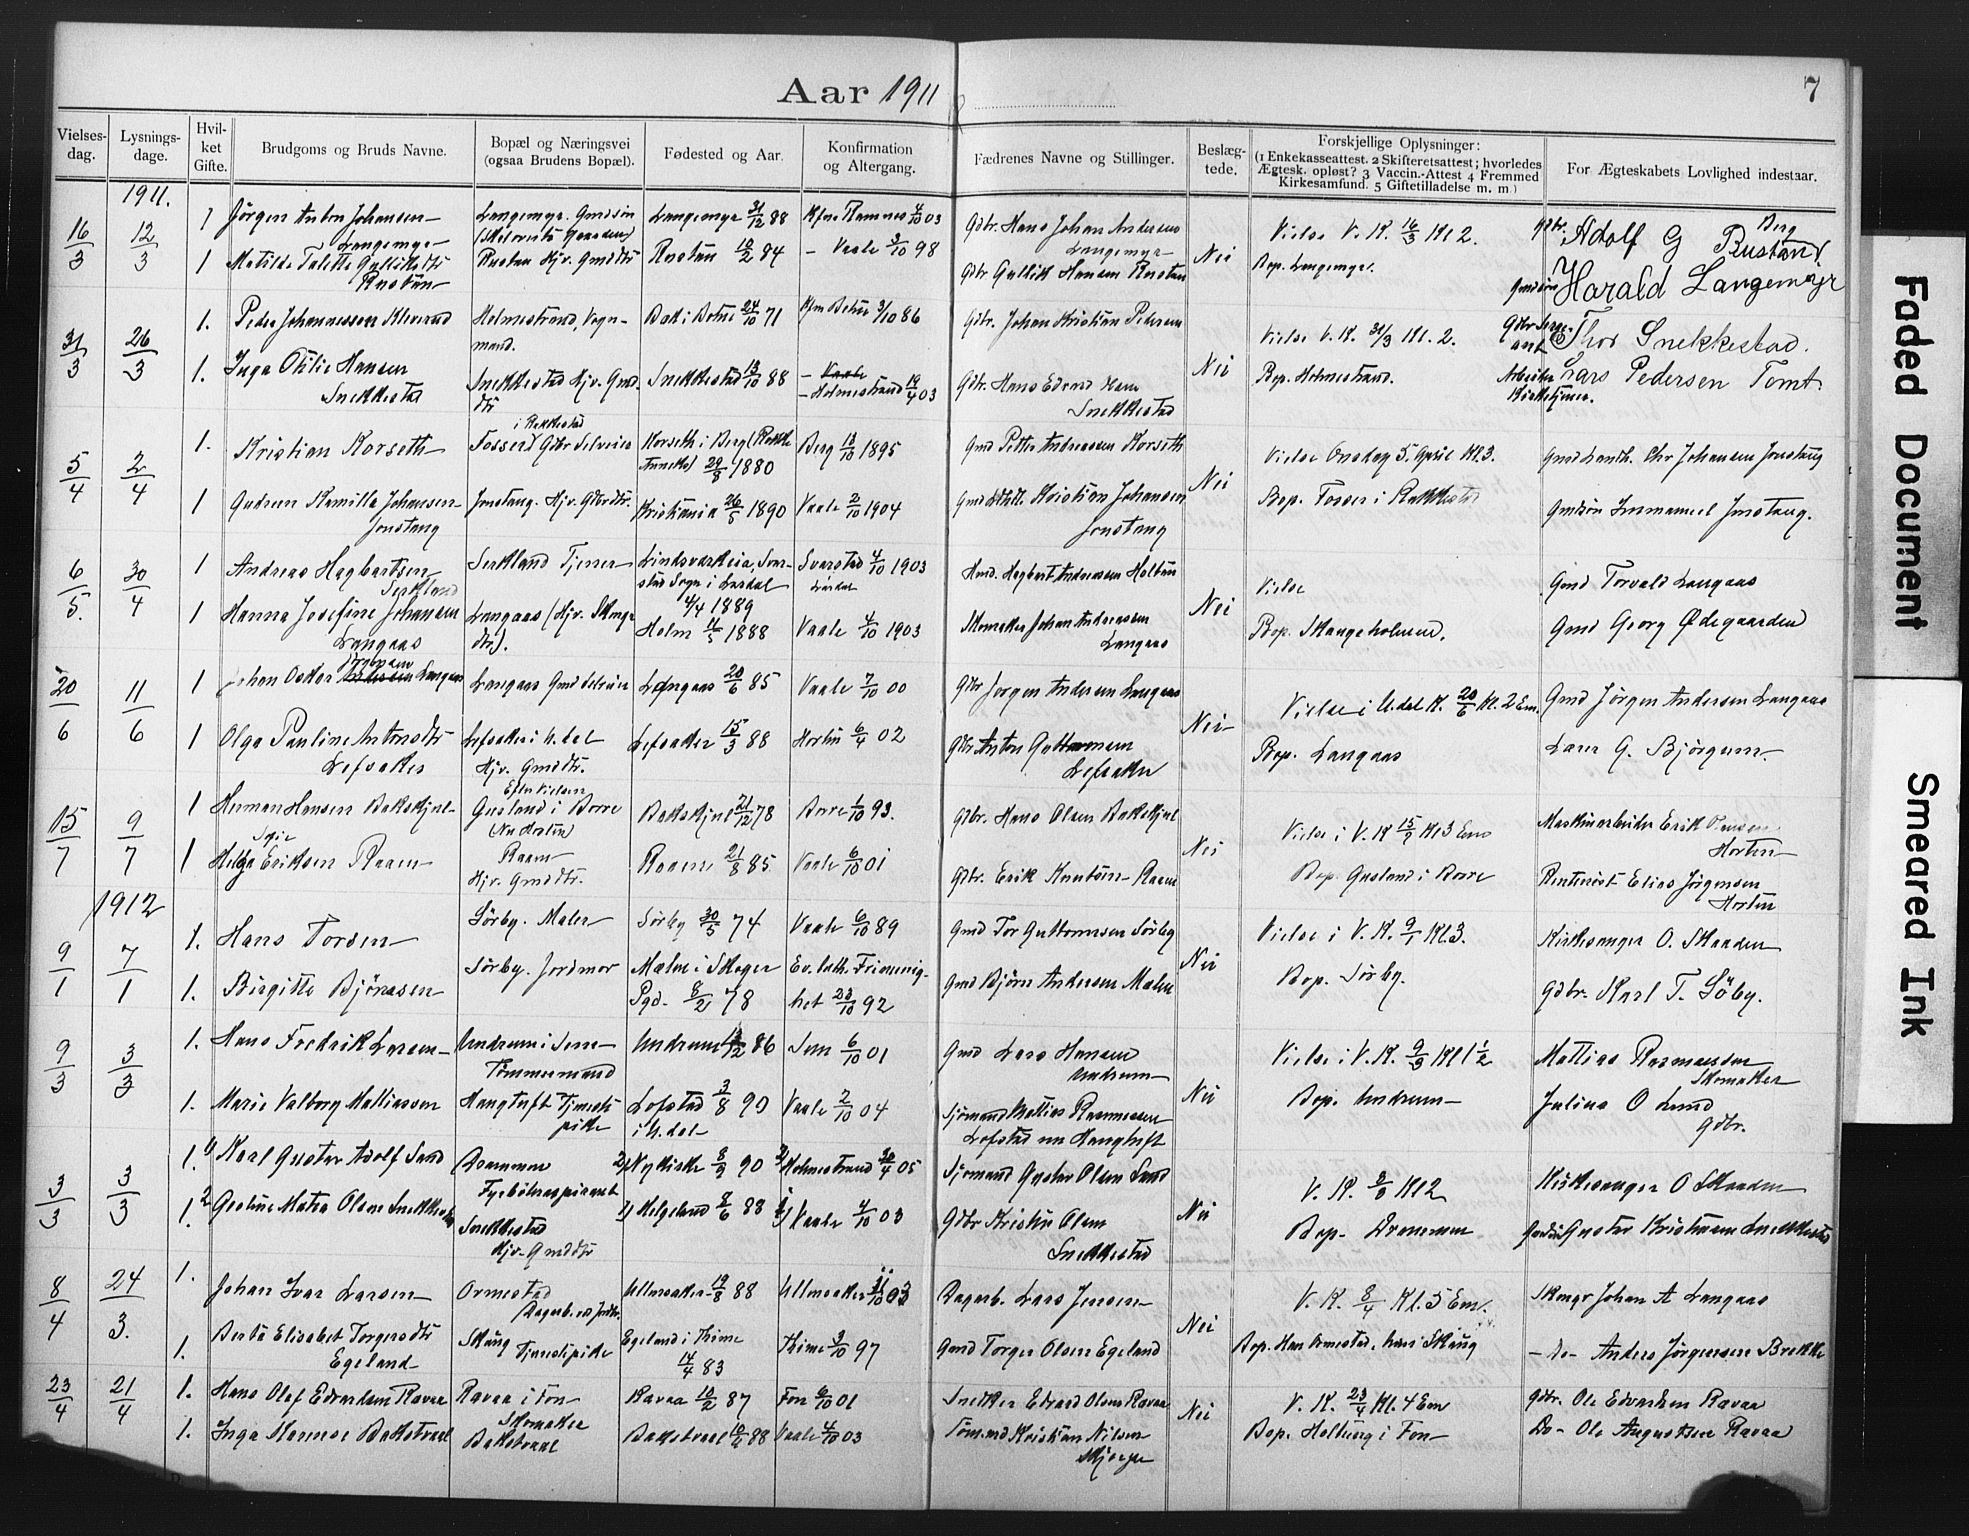 Aar 1911
7
Vielses-dag.
Lysnings-dage.
Hvil-ket Gifte.
Brudgoms og Bruds Navne.
Bopæl og Næringsvei (ogsaa Brudens Bopæl).
Fødested og Aar.
Konfirmation og Altergang.
Fædrenes Navne og Stillinger.
Beslæg-tede.
Forskjellige Oplysninger: (1 Enkekasseattest. 2 Skifteretsattest; hvorledes Ægtesk. opløst? 3 Vaccin.-Attest 4 Fremmed Kirkesamfund. 5 Giftetilladelse m. m)
For Ægteskabets Lovlighed indestaar.
1911.
16/3 12/3 1 Jörgen Anton Johansen Langemyr Langemyr. Gmdsön Langemyr 31/12 88 4/10 03 Gdbr. Hans Johan Andersen Langemyr Nei Vielse V. K. 16/3 Kl 2. Gdbr. Adolf G Berg Rustan
1 Matilde Rustan Rustan Hjv. Gmddtr Rustan 10/2 84 – Vaale 2/10 98 Gdbr Gullik Hansen Rustan Bop. Langemyr. Gmdsön Harald Langemyr
31/3 26/3 1. Peder Johannessen Kleverud Holmestrand, Vogn-mand. Bak i Botne 24/10 71 Kfm Botne 3/10 86 Gdbr. Johan Kristian Pedersen Vielse V. K. 31/3 Kl. 2. Thor Snekkestad.
1. Inga Othilie Hansen Snekkestad Snekkestad Hjv. Gmd-dtr Snekkestad 13/10 88 – Vaale – Holmestrand 19/4 03 Gdbr. Hans Snekkestad Nei Bop. Holmestrand. Arbeider Kirketjener. Lars Pedersen Tomt
5/4 2/4 1. Kristian Korseth Fosser i Rakkestad Gdbr Selveier Korseth i Berg 29/8 1880 Berg 13/10 1895 Gmd Petter Andreassen Korseth Nei Vielse Onsdag 5. April Kl. 3. Chr Johansen Jonstang
1 Gudrun Kamilla Johansen Jonstang Jonstang. Hjv. Gbrdtr. Kristiania 26/5 1890 Vaale 2/10 1904 Kristian Johansen Jonstang Bop. Fosser i Rakkestad Gmdsön Immanuel Jonstang.
6/5. 30/4 1 Andreas Hagbartsen Serkland Serkland Tjener 4/4 1889 Svarstad 4/10 1903 Hmd. Hagbart Andreassen Holtan Nei Vielse Gmd Torvald Langaas
1 Hanna Josefine Johansen Langaas Langaas Holm 4/5 1888 Vaale 4/10 1903 Skomaker Johan Andreassen Langaas Bop. Skangeholmen. Gmd Georg Ødegaarden
20/6 11/6 1 Johan Oskar Jörgensen Langaas Langaas Gmd selveier Langaas 20/6 85 Vaale 7/10 00 Gdbr Jörgen Andersen Langaas Nei Vielse i U.dal K. 20/6 Kl. 2 Em. Gmd Jörgen Andersen Langaas
1 Olga Pauline Antonsdtr Lefsaker Lefsaker i U.dal Hjv. Gmddtr. Lefsaker 15/3 88 Horten 6/4 02 Gdbr Anton Guttormsen Lefsaker Bop. Langaas G. Björgum
15/7 9/7 1 Herman Hansen Bakskjul Gusland i Borre (Nu Horten) Bakskjul 21/12 78 Borre 1/10 93. Gdbr. Hans Olsen Bakskjul Nei Vielse i V. K. Kl 3 Em Maskinarbeider Erik Horten
1 Helga Sofie Eriksen Raaen Raaen Hjv. Gmddtr. Raaen 21/8 85 Vaale 6/10 01 Gdbr. Erik Knutsen Raaen Bop. Gusland i Borre Elias Jörgensen Horten
1912
9/1 7/1 1. Hans Torsen Sörby. Maler Sörby 30/5 74 Vaale 6/10 89 Gmd Tor Guttormsen Sörby Nei Vielse i V. K. 9/1 Kl 3. Kirkesanger O. Skaaden
1. Birgitte Björnsen Sörby. Jordmor Malm i Skoger Pgd. 8/2 78 Ev. luth. Frimenig-het 23/10 92 Gmd Björn Andersen Malm Bop. Sörby. Gdbr. Karl T. Söby.
9/3 3/3 1. Hans Fredrik Larsen Undrum i Sem Tömmermand Undrum 86 Sem 6/10 01 Gmd Lars Hansen Undrum Nei Vielse i V. K. 9/3 Kl 1½ Mattias Rasmussen Skomaker
1. Marie Valborg Mattiassen Haugtuft Tjeneste-pike Lofstad i U.dal 3/8 90 Vaale 2/10 04 Sjömand Mattias Rasmussen Lofstad nu Haugtuft Bop. Undrum Julius O Lund Gdbr.
3/3 3/3 1. Karl Gustav Adolf Sand Drammen Nykirke 8/9 90 Holmestrand 30/4 05 Sjömand Gustav Olsen Sand Nei V. K. Kl 2 Kirkesanger O Skaaden
1. Olsen Snekkestad Snekkestad Hjv. Gmddtr Helgeland 8/6 88 Vaale 4/10 03 Gdbr Kristen Olsen Snekkestad Bop. Drammen Gustav Kristiansen Snekkestad
8/4 24/3. 1. Johan Ivar Larsen Ormestad Ullensaker 19/8 88 Ullensaker 03 Dagarb. Lars Jensen Nei V. K. 8/4 Kl. 5 Em. Johan A Langaas
1. Berta Elisabet Torgersdtr Egeland Skaug Tjenestepike Egeland i Thime 14/4 83 Thime 3/10 97 Gmd Torger Olsen Egeland Bop. Han Ormestad, hun Skaug – do – Anders Jörgensen Brekke
23/4 21/4 1. Hans Olaf Edvardsen Ravaa Ravaa i Fon Skomaker Ravaa 10/2 87 Fon 6/10 01 Snedker Edvard Olsen Ravaa Nei V. K. 23/4 Kl. 4 Em Gdbr. Ole Edvardsen Ravaa
1. Inga Bakstvaal Bakstvaal Bakstvaal 88 Vaale 4/10 03 Kristian Nilsen Bop. i Fon Do – Ole Augustsen Ravaa
Faded Document
Smeared Ink